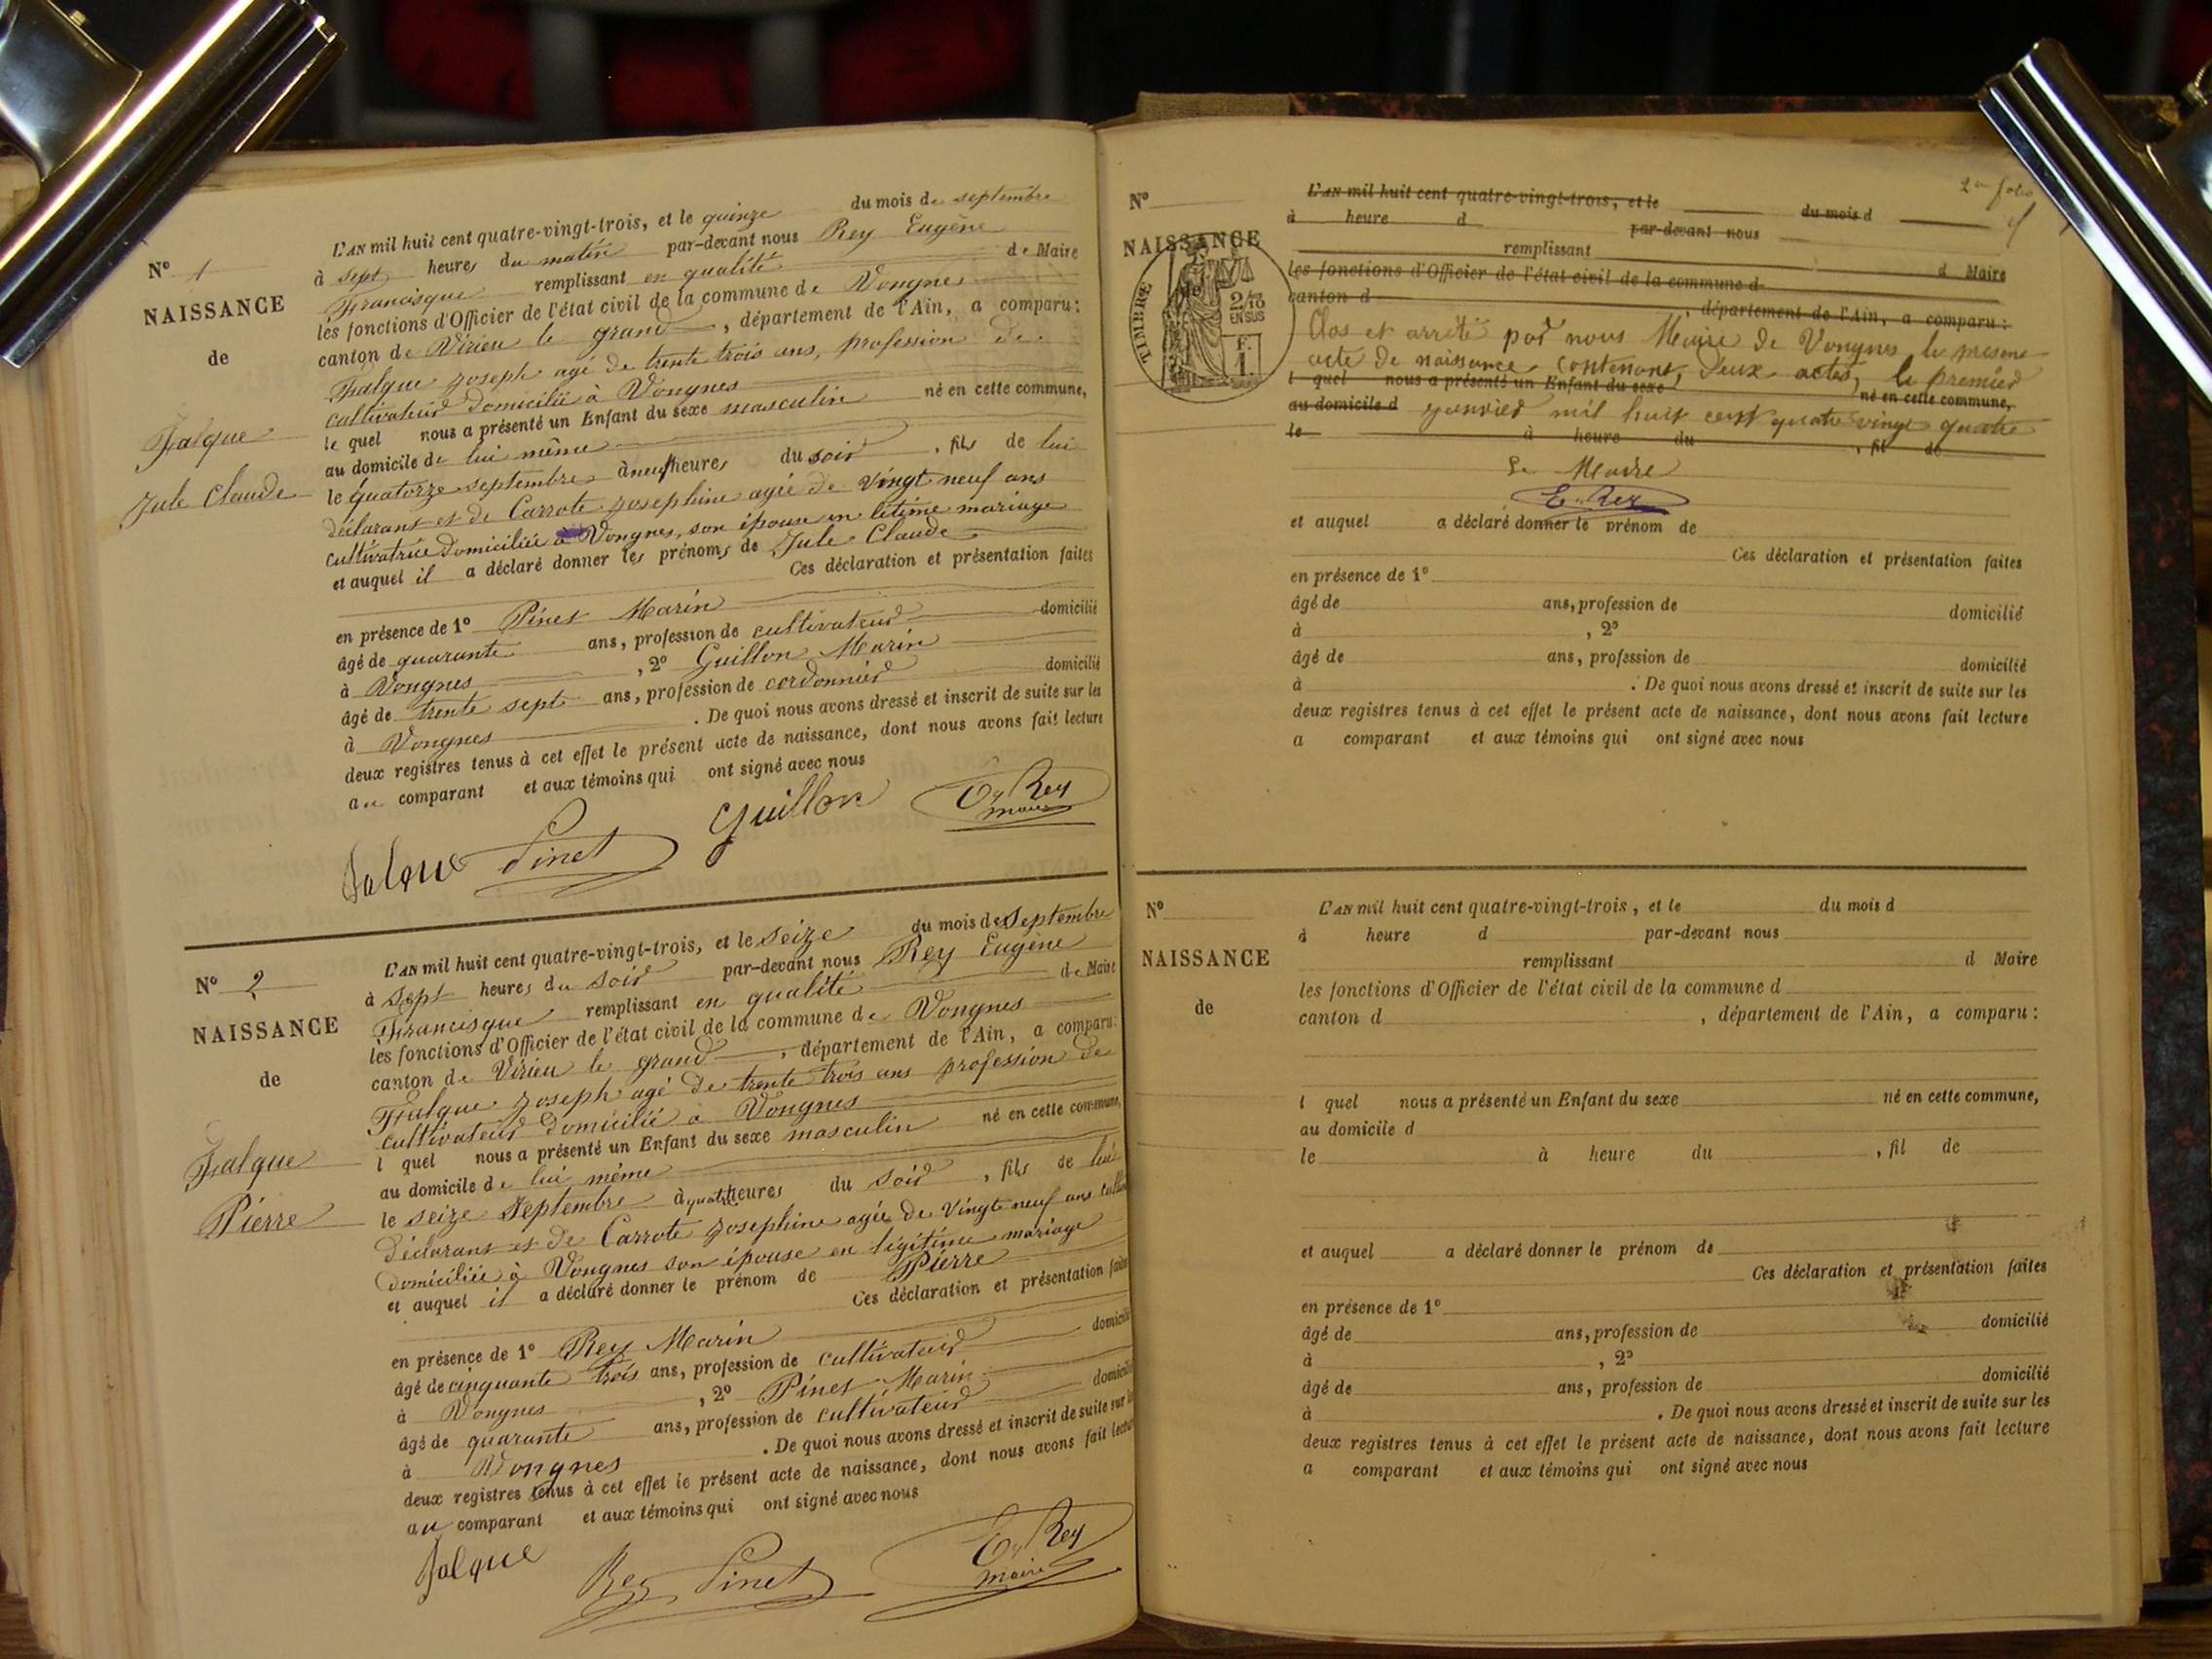 L'AN mil huit cent quatre-vingt-trois, et le quinze du mois de septembre
à sept heures du matin par-devant nous Rey Eugène
Francisque remplissant en qualité de Maire
les fonctions d'Officier de l'état civil de la commune de Vongnes
canton de Virieu le grand, département de l'Ain, a comparu:
Falque Joseph agé de trente trois ans, profession de
cultivateur domicilié à Vongnes
le quel nous a présenté un Enfant du sexe masculin né en cette commune,
au domicile de lui même
le quatorze septembre à neuf heures du soir, fils de lui
déclarant et de Carrote Josephine agée de vingt neuf ans
cultivatrice domiciliée à Vongnes, son épouse en létime mariage
et auquel il a déclaré donner les prénoms de Jule Claude
Ces déclaration et présentation faites
en présence de 1° Pinet Marin
âgé de quarante ans, profession de cultivateur domicilié
à Vongnes, 2° Guillon Marin
âgé de trente sept ans, profession de cordonnier domicilié
à Vongnes. De quoi nous avons dressé et inscrit de suite sur les
deux registres tenus à cet effet le présent acte de naissance, dont nous avons fait lecture
au comparant et aux témoins qui ont signé avec nous
Falque Pinet Guillon Eg Rey
maire
N° 1
NAISSANCE
de
Falque
Jule Claude
L'AN mil huit cent quatre-vingt-trois, et le seize du mois de Septembre
à Sept heures du soir par-devant nous Rey Eugène
Francisque remplissant en qualité de Maire
les fonctions d'Officier de l'état civil de la commune de Vongnes
canton de Virieu le grand, département de l'Ain, a comparu:
Falque Joseph agé de trente trois ans profession de
cultivateur domicilié à Vongnes
l quel nous a présenté un Enfant du sexe masculin né en cette commune,
au domicile de lui même
le seize Septembre à quatre heures du soir, fils de lui
déclarant et de Carrote Josephine agée de Vingt neuf ans
domiciliée à Vongnes son épouse en légitime mariage
et auquel il a déclaré donner le prénom de Pierre
Ces déclaration et présentation faites
en présence de 1° Rey Marin
âgé de cinquante trois ans, profession de cultivateur domicilié
à Vongnes, 2° Pinet Marin
âgé de quarante ans, profession de cultivateur domicilié
à Vongnes. De quoi nous avons dressé et inscrit de suite sur les
deux registres tenus à cet effet le présent acte de naissance, dont nous avons fait lecture
au comparant et aux témoins qui ont signé avec nous
Falque Rey Pinet Eg Rey
maire
N° 2
NAISSANCE
de
Falque
Pierre
2me folio
N°
NAISSANCE
de
TIMBRE
2/10
EN SUS
L'AN mil huit cent quatre-vingt-trois, et le du mois d
à heure d par-devant nous
remplissant d Maire
les fonctions d'Officier de l'état civil de la commune d
canton d, département de l'Ain, a comparu:
Clos et arrêté par nous Maire de Vongnes le présent
acte de naissance contenant deux actes, le premier
l quel nous a présenté un Enfant du sexe né en cette commune,
au domicile d janvier mil huit cent quatre vingt quatre
le à heure du, fil de
Le Maire
E. Rey
et auquel a déclaré donner le prénom de
Ces déclaration et présentation faites
en présence de 1°
âgé de ans, profession de domicilié
à, 2°
âgé de ans, profession de domicilié
à. De quoi nous avons dressé et inscrit de suite sur les
deux registres tenus à cet effet le présent acte de naissance, dont nous avons fait lecture
a comparant et aux témoins qui ont signé avec nous
N°
NAISSANCE
de
L'AN mil huit cent quatre-vingt-trois, et le du mois d
à heure d par-devant nous
remplissant d Maire
les fonctions d'Officier de l'état civil de la commune d
canton d, département de l'Ain, a comparu:
l quel nous a présenté un Enfant du sexe né en cette commune,
au domicile d
le à heure du, fil de
et auquel a déclaré donner le prénom de
Ces déclaration et présentation faites
en présence de 1°
âgé de ans, profession de domicilié
à, 2°
âgé de ans, profession de domicilié
à. De quoi nous avons dressé et inscrit de suite sur les
deux registres tenus à cet effet le présent acte de naissance, dont nous avons fait lecture
a comparant et aux témoins qui ont signé avec nous